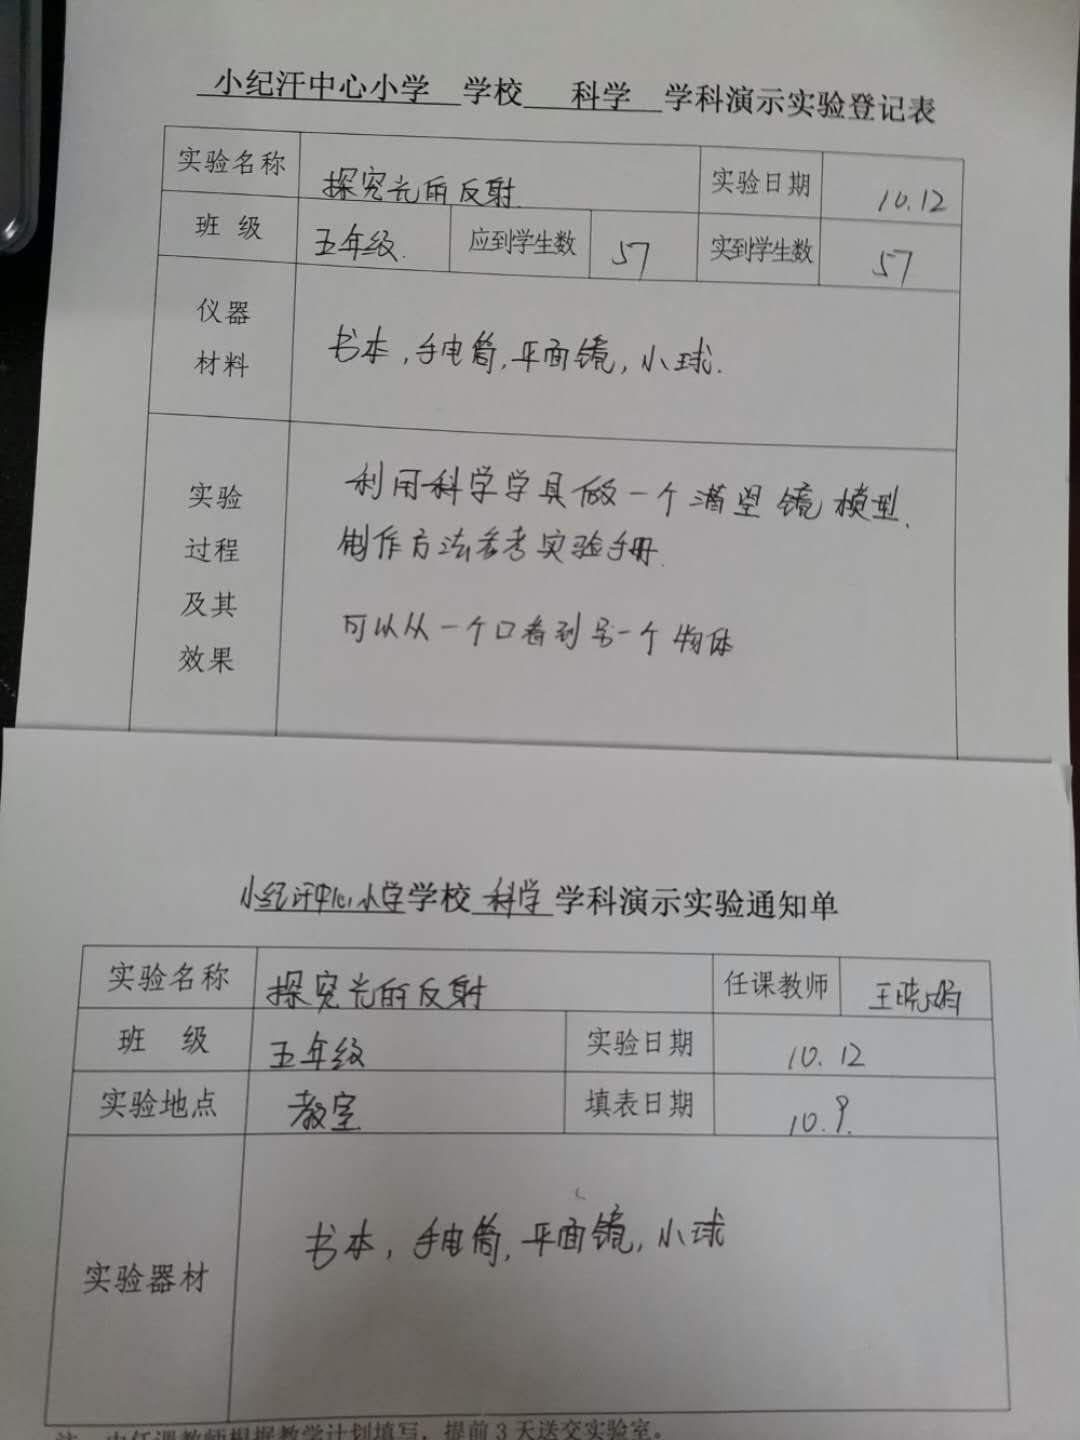 小纪汗中心小学 学校 科学 学科演示实验登记表
实验名称 探究光的反射 实验日期 10.12
班 级 五年级. 应到学生数 57 实到学生数 57
仪器
材料
书本,手电筒,平面镜,小球.
实验
过程
及其
效果
利用科学学具做一个潜望镜模型.
制作方法参考实验手册.
可以从一个口看到另一个物体
小纪汗中心小学学校 科学 学科演示实验通知单
实验名称 探究光的反射 任课教师 王晓娟
班 级 五年级 实验日期 10.12
实验地点 教室 填表日期 10.9.
实验器材 书本,手电筒,平面镜,小球
注:由任课教师根据教学计划填写,提前3天送交实验室。